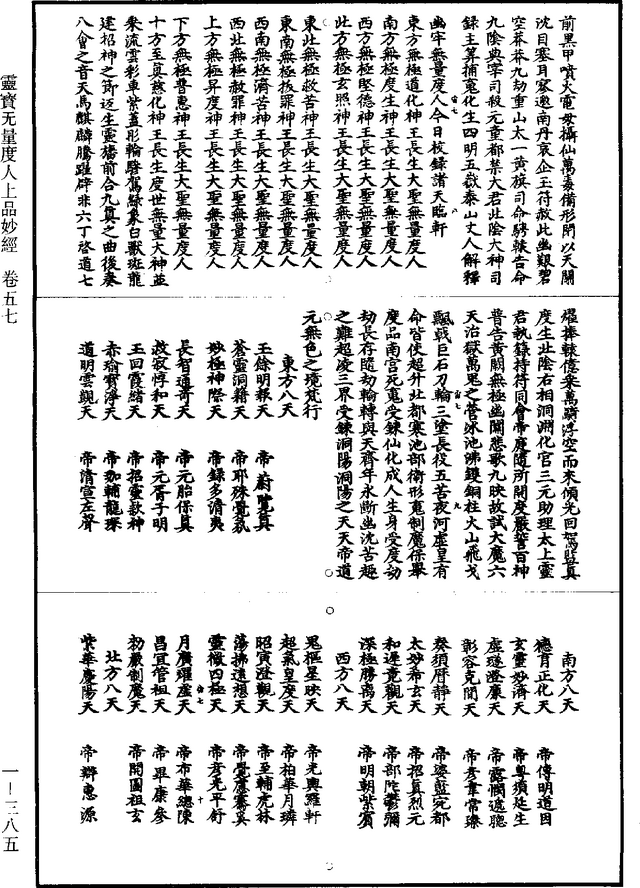 靈寶无量度人上品妙經　卷五七
一－三八五
前黑甲噴火電母攝仙萬毒備形開以天關
沈目塞耳寥邈南丹哀企玉符赦此幽艱碧
空莽莽九劫重山太一黄旗司命騁轅告命
九陰典宰司殺元童都禁大君北陰大神司
錄主筭捕寃化生四明五嶽泰山丈人解釋
幽牢無量度人今日校錄諸天臨軒
東方無極道化神王長生大聖無量度人
南方無極度生神王長生大聖無量度人
西方無極堅德神王長生大聖無量度人
此方無極玄照神王長生大聖無量度人
東北無極救苦神王長生大聖無量度人
東南無極拔罪神王長生大聖無量度人
西南無極濟苦神王長生大聖無量度人
西北無極赦罪神王長生大聖無量度人
上方無極昇度神王長生大聖無量度人
下方無極普惠神王長生大聖無量度人
十方至真慈化神王長生度世無量大神並
乘流雲彩車紫蓋彤輪驂駕綠象白獸斑龍
建招神之節迊生靈旛前合九真之曲後奏
八會之音天馬麒麟騰躍辟非六丁啓道七
燿捧轅億乘萬騎浮空而來傾光回駕監真
度生北陰右相洞淵化官三元助理太上靈
君執錄持符同會帝庭隨所開度嚴誓百神
普告黄闕無極幽關悲歌九映故試大魔六
天治獄萬鬼之營冰池沸鑊銅柱火山飛戈
飄戟巨石刀輪三塗長役五苦夜河虛皇有
命皆使超升北都寒池部衛形寃制魔保舉
度品南宮死寃受鍊仙化成人生身受度劫
劫長存隨劫輪轉與天齊年永斷幽沈苦趣
之難超凌三界受鍊洞陽洞陽之天天帝道
元無色之境梵行
東方八天
玉餘明報天　帝蔚陛真
蒼靈洞籍天　帝耶殊覺氛
妙極神際天　帝錄多清夷
長智通奇天　帝元胎保真
赦寂惇和天　帝元胥子明
王回霞緒天　帝招靈敖神
赤瑜寶淨天　帝加輔龍琛
道明雲觀天　帝清宣左聲
南方八天
德育正化天　帝傅明道因
玄靈妙濟天　帝粤須延生
虛璲澄廉天　帝露憫遮聽
彰容克開天　帝彥韋常璨
獒須脣靜天　帝婆藍宛都
太妙希玄天　帝招真烈元
和遲竟觀天　帝部陀鬱彌
深極勝禹天　帝明朝紫賓
西方八天
晃樞星映天　帝光輿羅軒
超氣皇度天　帝柏華月璘
昭寅澄觀天　帝至輔虎林
蕩拂遠想天　帝覺度騫奚
靈徽四極天　帝彥光平舒
月廣羅虛天　帝布華總陳
昌宜管祖天　帝畢康參
初嚴制魔天　帝開圖祖玄
北方八天
紫華慶陽天　帝辯惠源